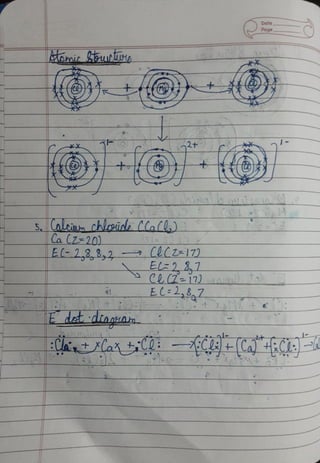 Date
Page
Atomic Structure
Cl + Mg + Cl
[Cl]1- + [Mg]2+ + [Cl]1-
5. Calcium chloride (CaCl2)
Ca (Z=20)
EC- 2,8,8,2 → Cl (Z=17)
EC= 2,8,7
Cl (Z=17)
EC=2,8,7
E dot diagram
:Cl. + xCax + .Cl: → (:Cl:)1- + (Ca)2+ + (:Cl:)1- →